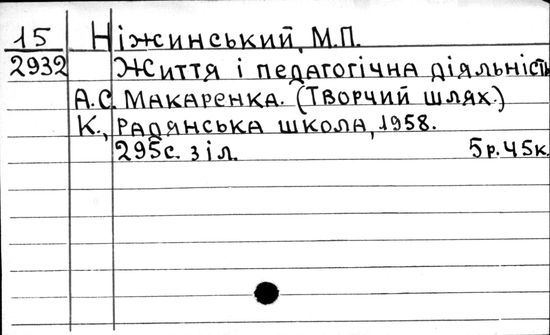 15 Ніжинський, М.П.
2932 Життя і педагогічна діяльність
А.С. Макаренка. (Творчий шлях.)
К., Радянська школа, 1958.
295с. з іл. 5р.45к.